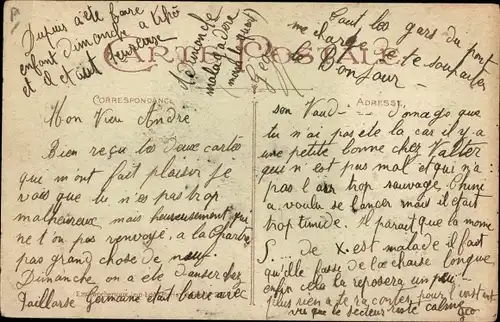 Jupus a été faire
enfant Dimanche a
et il etait heureux
Dimanche
malag
Geo
Tout les gars du pont
me charge de te souhaiter
le Bonjour
CARTE POSTALE
CORRESPONDANCE
ADRESSE
Mon Vieu André
Bien reçu tes deux cartes
que m'ont fait plaisir je
vois que tu n'es pas trop
malheureux mais heureusement qu'
ne t'on pas renvoyé a la
pas grand chose de neuf.
Dimanche on a été danser chez
Taillarse Germaine etait barre avec
son Vaud - - - Domage que
tu n'ai pas été la car il y a
une petite bonne chez Valter
qui n'est pas mal et qui n'a
pas l'air trop sauvage. Chine
a voulu se lancer mais il était
trop timide. Il parait que la mome
S... de X. est malade il faut
qu'elle fasse de la chaise longue
enfin cela la reposera un peu
plus rien a te raconter pour l'instant
vu que le secteur est calme
Geo